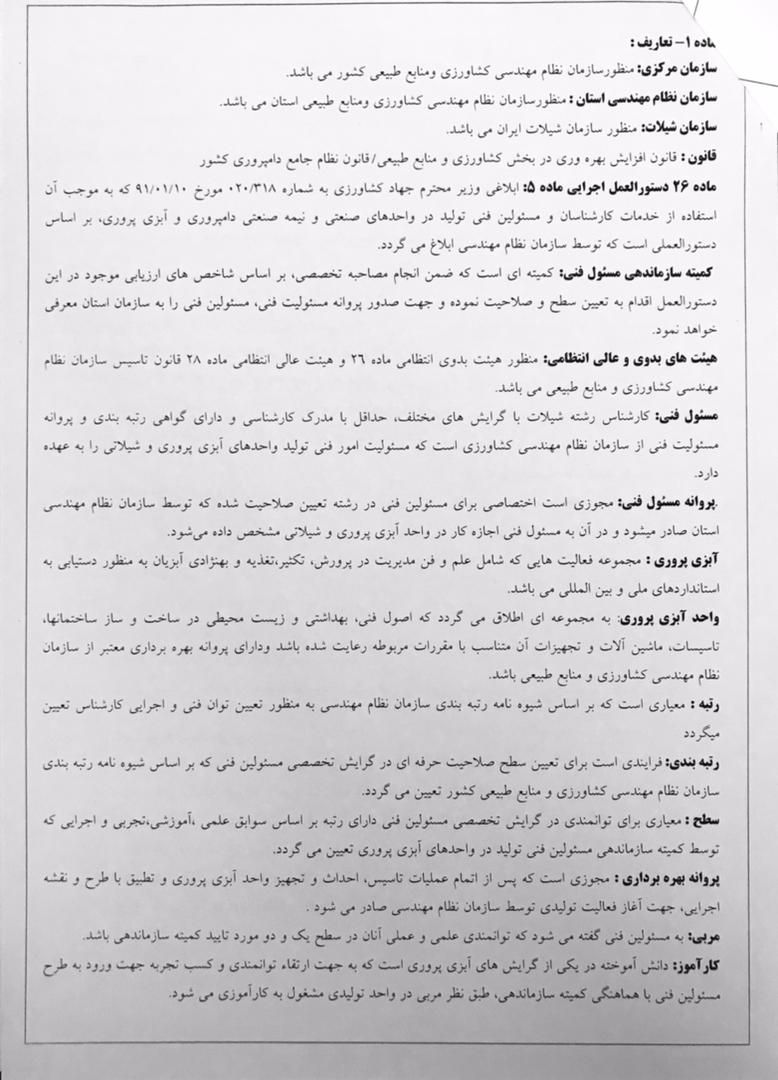 ماده ۱– تعاریف :
سازمان مرکزی: منظورسازمان نظام مهندسی کشاورزی ومنابع طبیعی کشور می باشد.
سازمان نظام مهندسی استان : منظورسازمان نظام مهندسی کشاورزی ومنابع طبیعی استان می باشد.
سازمان شیلات: منظور سازمان شیلات ایران می باشد.
قانون : قانون افزایش بهره وری در بخش کشاورزی و منابع طبیعی/قانون نظام جامع دامپروری کشور
ماده ۲۶ دستورالعمل اجرایی ماده ۵: ابلاغی وزیر محترم جهاد کشاورزی به شماره ۰۲۰/۳۱۸ مورخ ۹۱/۰۱/۱۰ که به موجب آن
استفاده از خدمات کارشناسان و مسئولین فنی تولید در واحدهای صنعتی و نیمه صنعتی دامپروری و آبزی پروری، بر اساس
دستورالعملی است که توسط سازمان نظام مهندسی ابلاغ می گردد.
کمیته سازماندهی مسئول فنی: کمیته ای است که ضمن انجام مصاحبه تخصصی، بر اساس شاخص های ارزیابی موجود در این
دستورالعمل اقدام به تعیین سطح و صلاحیت نموده و جهت صدور پروانه مسئولیت فنی، مسئولین فنی را به سازمان استان معرفی
خواهد نمود.
هیئت های بدوی و عالی انتظامی: منظور هیئت بدوی انتظامی ماده ۲۶ و هیئت عالی انتظامی ماده ۲۸ قانون تاسیس سازمان نظام
مهندسی کشاورزی و منابع طبیعی می باشد.
مسئول فنی: کارشناس رشته شیلات با گرایش های مختلف، حداقل با مدرک کارشناسی و دارای گواهی رتبه بندی و پروانه
مسئولیت فنی از سازمان نظام مهندسی کشاورزی است که مسئولیت امور فنی تولید واحدهای آبزی پروری و شیلاتی را به عهده
دارد.
.پروانه مسئول فنی: مجوزی است اختصاصی برای مسئولین فنی در رشته تعیین صلاحیت شده که توسط سازمان نظام مهندسی
استان صادر میشود و در آن به مسئول فنی اجازه کار در واحد آبزی پروری و شیلاتی مشخص داده می‌شود.
آبزی پروری : مجموعه فعالیت هایی که شامل علم و فن مدیریت در پرورش، تکثیر،تغذیه و بهنژادی آبزیان به منظور دستیابی به
استانداردهای ملی و بین المللی می باشد.
واحد آبزی پروری: به مجموعه ای اطلاق می گردد که اصول فنی، بهداشتی و زیست محیطی در ساخت و ساز ساختمانها،
تاسیسات، ماشین آلات و تجهیزات آن متناسب با مقررات مربوطه رعایت شده باشد ودارای پروانه بهره برداری معتبر از سازمان
نظام مهندسی کشاورزی و منابع طبیعی باشد.
رتبه : معیاری است که بر اساس شیوه نامه رتبه بندی سازمان نظام مهندسی به منظور تعیین توان فنی و اجرایی کارشناس تعیین
میگردد
رتبه بندی: فرایندی است برای تعیین سطح صلاحیت حرفه ای در گرایش تخصصی مسئولین فنی که بر اساس شیوه نامه رتبه بندی
سازمان نظام مهندسی کشاورزی و منابع طبیعی کشور تعیین می گردد.
سطح : معیاری برای توانمندی در گرایش تخصصی مسئولین فنی دارای رتبه بر اساس سوابق علمی ،آموزشی،تجربی و اجرایی که
توسط کمیته سازماندهی مسئولین فنی تولید در واحدهای آبزی پروری تعیین می گردد.
پروانه بهره برداری : مجوزی است که پس از اتمام عملیات تاسیس، احداث و تجهیز واحد آبزی پروری و تطبیق با طرح و نقشه
اجرایی، جهت آغاز فعالیت تولیدی توسط سازمان نظام مهندسی صادر می شود .
مربی: به مسئولین فنی گفته می شود که توانمندی علمی و عملی آنان در سطح یک و دو مورد تایید کمیته سازماندهی باشد.
کارآموز: دانش آموخته در یکی از گرایش های آبزی پروری است که به جهت ارتقاء توانمندی و کسب تجربه جهت ورود به طرح
مسئولین فنی با هماهنگی کمیته سازماندهی، طبق نظر مربی در واحد تولیدی مشغول به کارآموزی می شود.